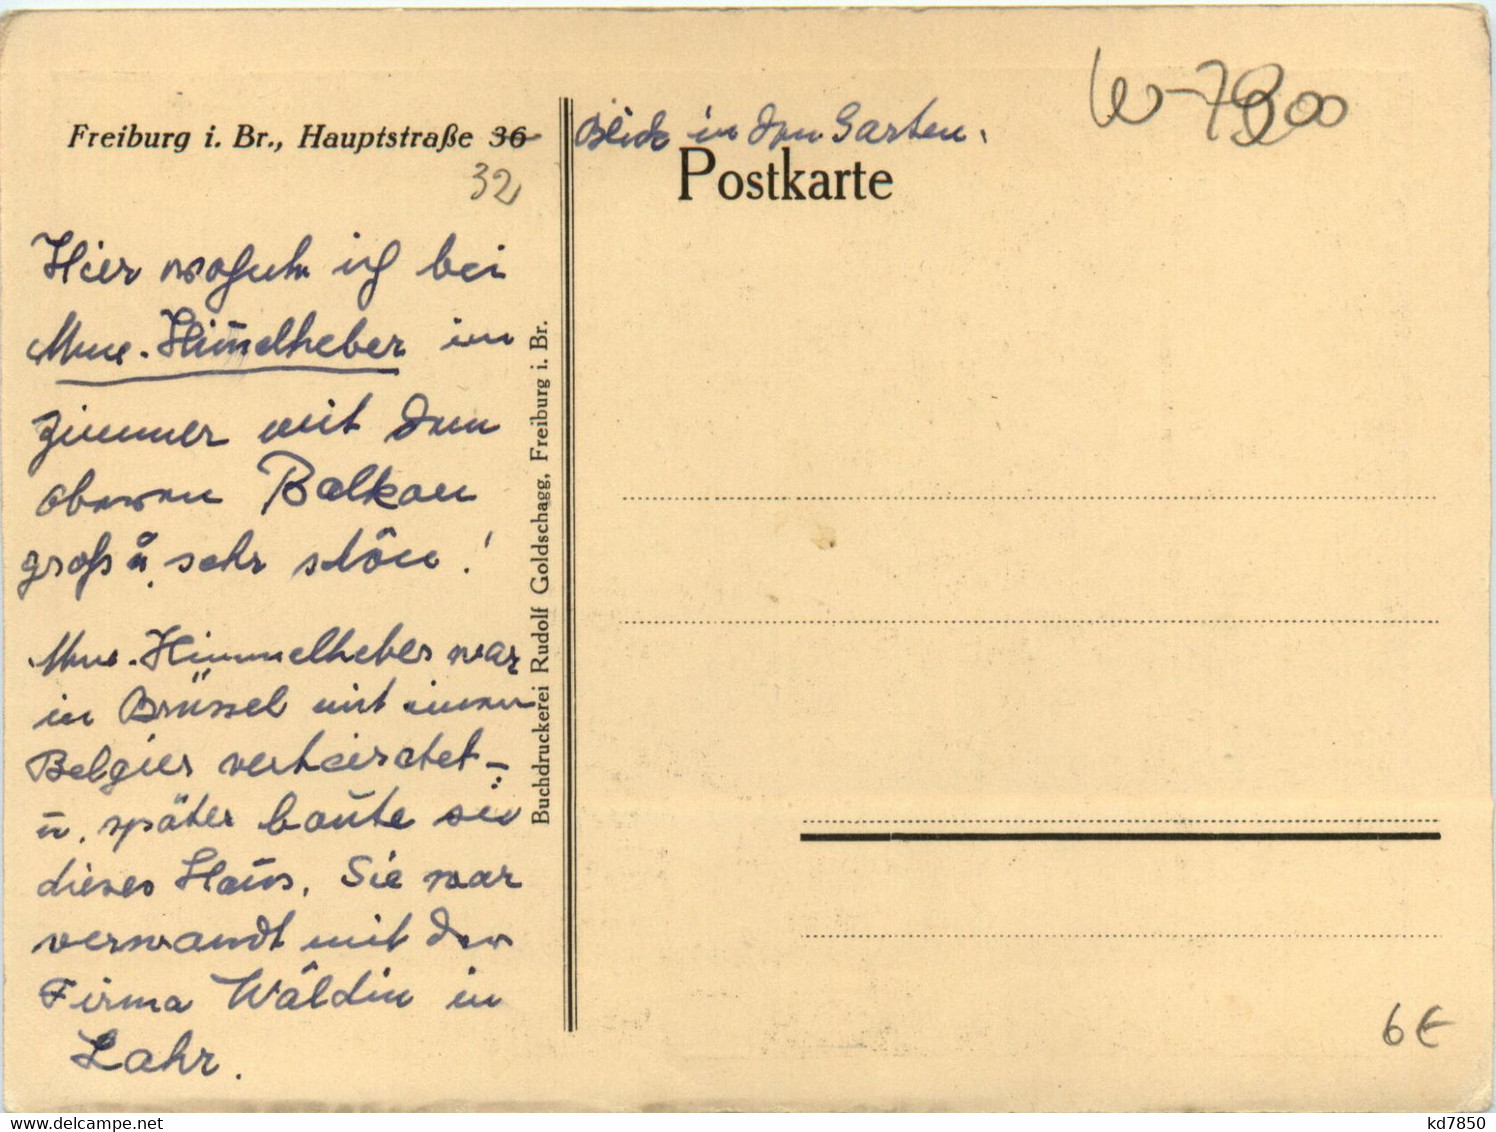 Freiburg i. Br., Hauptstraße 36
32
Hier wohnte ich bei
Mme. Him̅elheber im
Zimmer mit dem
oberen Balkon
groß u. sehr schön!
Mme. Himmelheber war
in Brüssel mit einem
Belgier verheiratet -
u. später baute sie
dieses Haus. Sie war
verwandt mit der
Firma Wäldin in
Lahr.
Buchdruckerei Rudolf Goldschagg, Freiburg i. Br.
Blick in den Garten.
Postkarte
W-7800
6€
kd7850